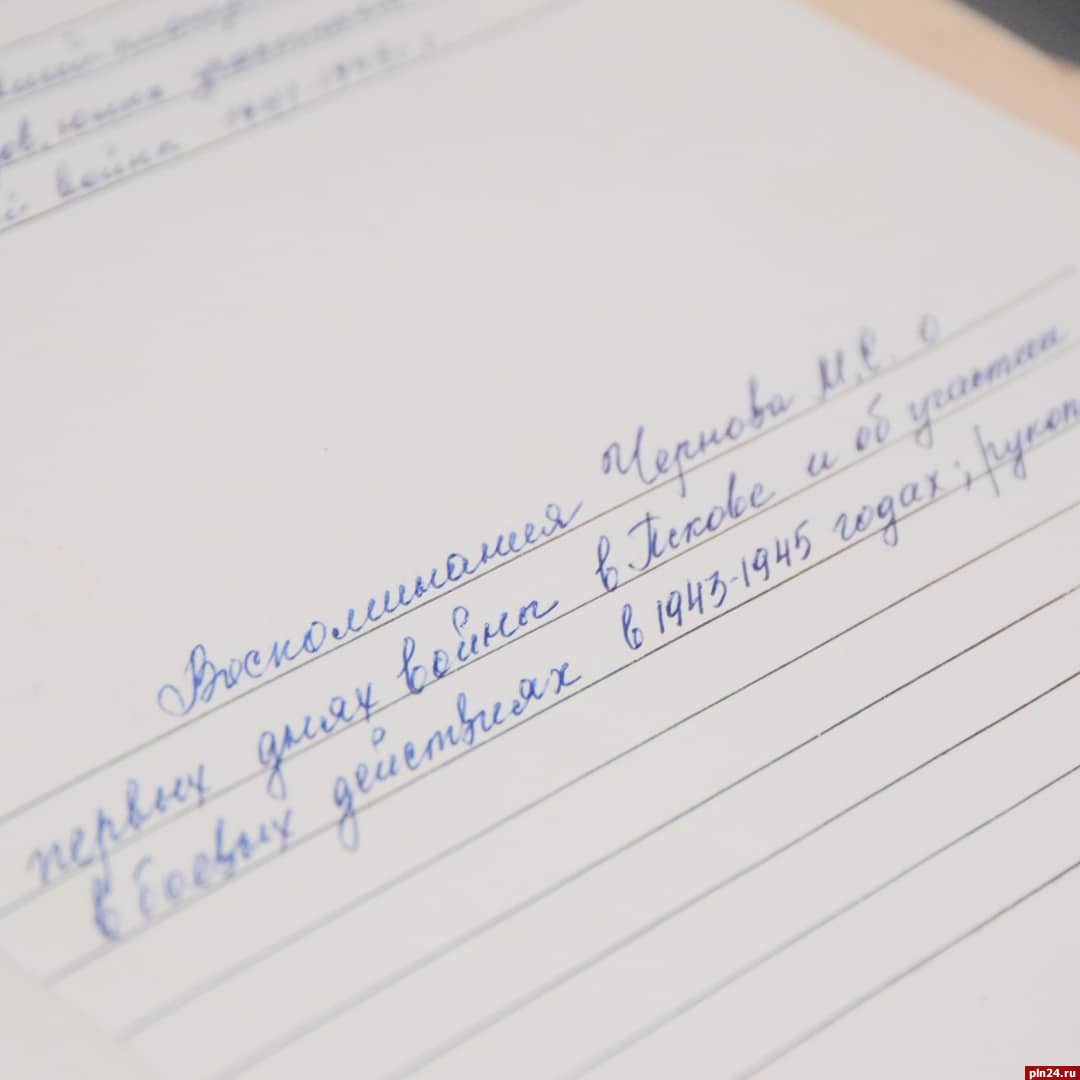 война 1941-1945
Воспоминания Чернова М.С. о
первых днях войны в Пскове и об участии
в боевых действиях в 1943-1945 годах; рукоп
pln24.ru